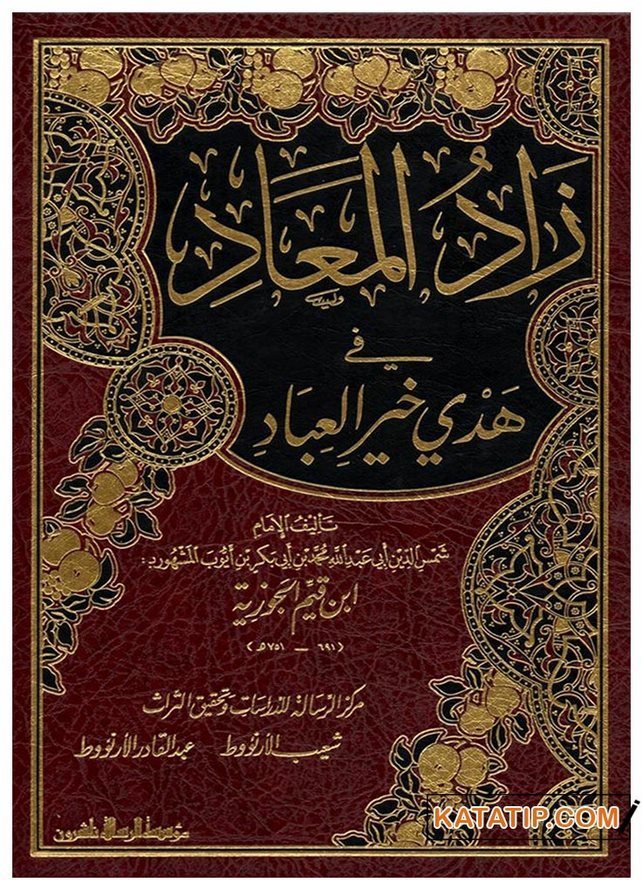 زَادُ المَعَادِ
في
هَدْي خَيرِ العِبَادِ
تأليف الإمام
شمس الدين أبي عبد الله محمد بن أبي بكر بن أيوب المشهور بـ :
ابن قيم الجوزية
(٦٩١ – ٧٥١ هـ)
مركز الرسالة للدراسات وتحقيق التراث
شعيب الأرنؤوط عبد القادر الأرنؤوط
مؤسسة الرسالة ناشرون
KATATIP.COM